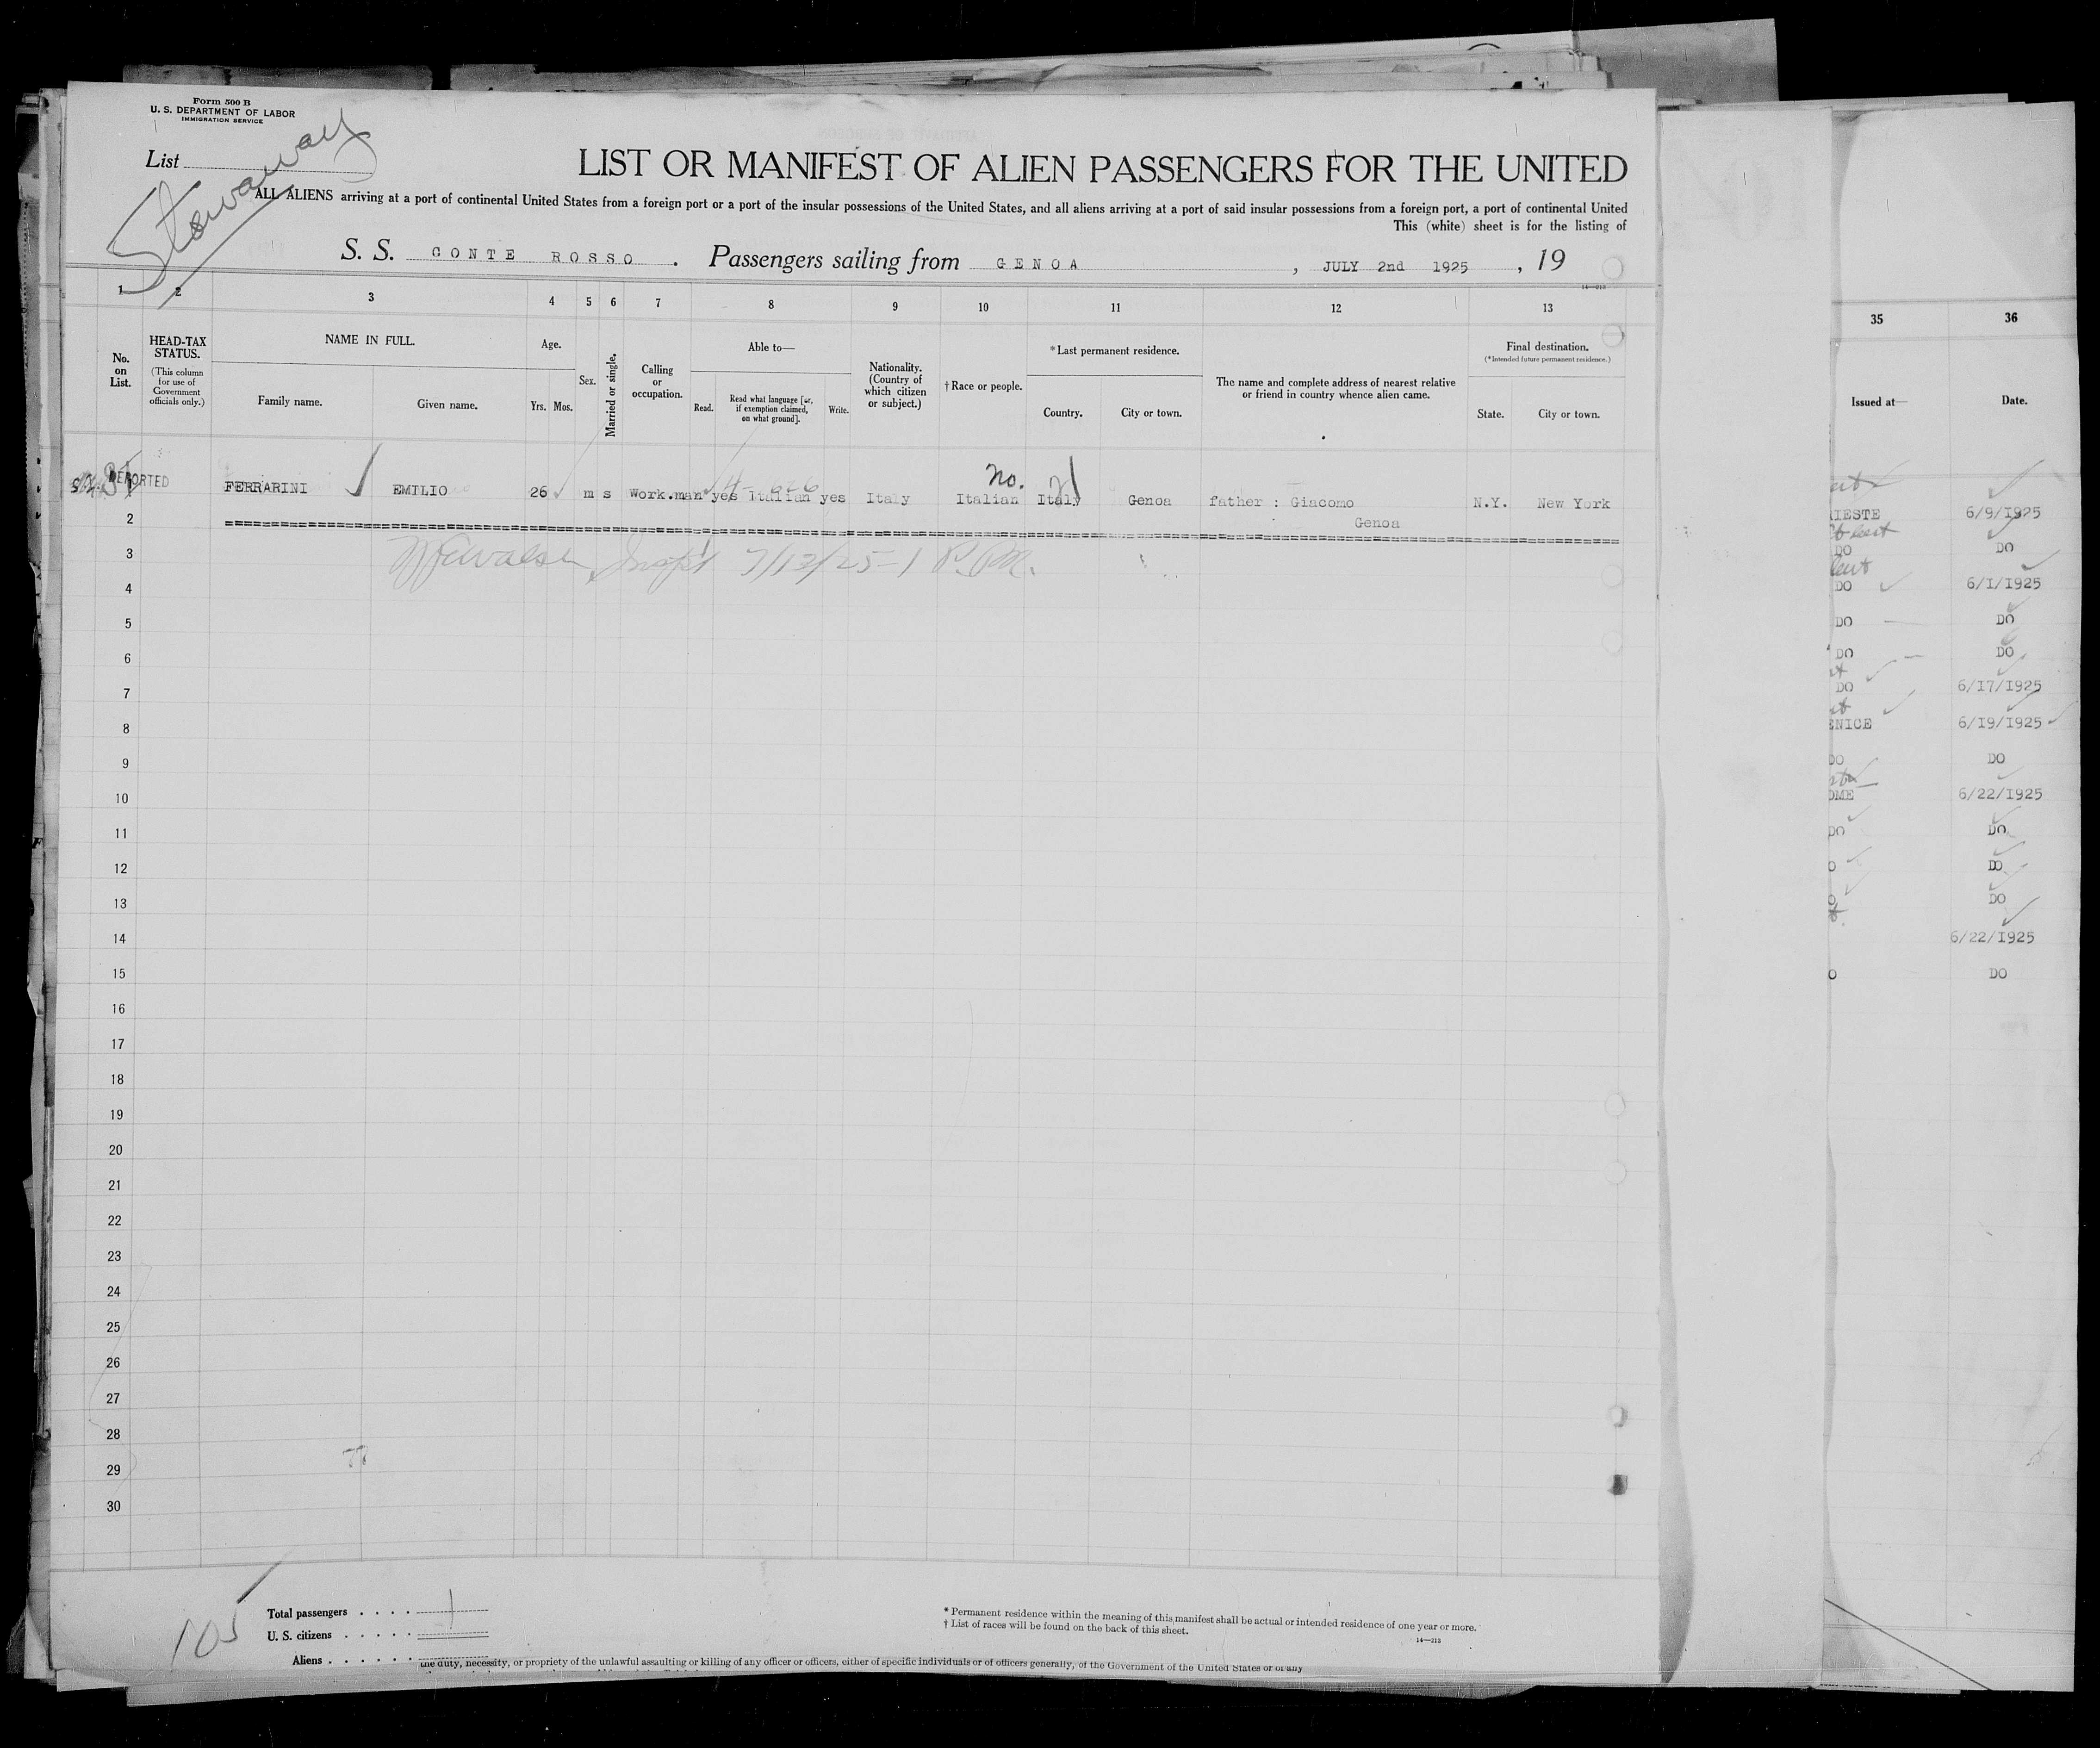 Form 500 B
U. S. DEPARTMENT OF LABOR
IMMIGRATION SERVICE
List
Stowaway
LIST OR MANIFEST OF ALIEN PASSENGERS FOR THE UNITED
ALL ALIENS arriving at a port of continental United States from a foreign port or a port of the insular possessions of the United States, and all aliens arriving at a port of said insular possessions from a foreign port, a port of continental United
This (white) sheet is for the listing of
S. S. CONTE ROSSO . Passengers sailing from GENOA , JULY 2nd 1925 , 19
14—213
1 2 3 4 5 6 7 8 9 10 11 12 13
No. on List.
HEAD-TAX STATUS.
(This column for use of Government officials only.)
NAME IN FULL.
Family name. Given name.
Age.
Yrs. Mos.
Sex.
Married or single.
Calling or occupation.
Able to—
Read. Read what language [or, if exemption claimed, on what ground]. Write.
Nationality. (Country of which citizen or subject.)
† Race or people.
* Last permanent residence.
Country. City or town.
The name and complete address of nearest relative or friend in country whence alien came.
Final destination.
(* Intended future permanent residence.)
State. City or town.
no.
DEPORTED FERRARINI EMILIO 26 m s Work.man yes Italian yes Italy Italian Italy Genoa father : Giacomo N.Y. New York
Genoa
2
3
Insp't 7/13/25-1 P.M.
4
5
6
7
8
9
10
11
12
13
14
15
16
17
18
19
20
21
22
23
24
25
26
27
28
29
30
105
Total passengers . . . . 1
U. S. citizens . . . . .
Aliens . . . . . .
* Permanent residence within the meaning of this manifest shall be actual or intended residence of one year or more.
† List of races will be found on the back of this sheet.
14—213
the duty, necessity, or propriety of the unlawful assaulting or killing of any officer or officers, either of specific individuals or of officers generally, of the Government of the United States or of any
35 36
Issued at— Date.
RIESTE 6/9/1925
DO DO
DO 6/1/1925
DO DO
DO DO
DO 6/17/1925
ENICE 6/19/1925
DO DO
OME 6/22/1925
DO DO
O DO
O DO
6/22/1925
O DO